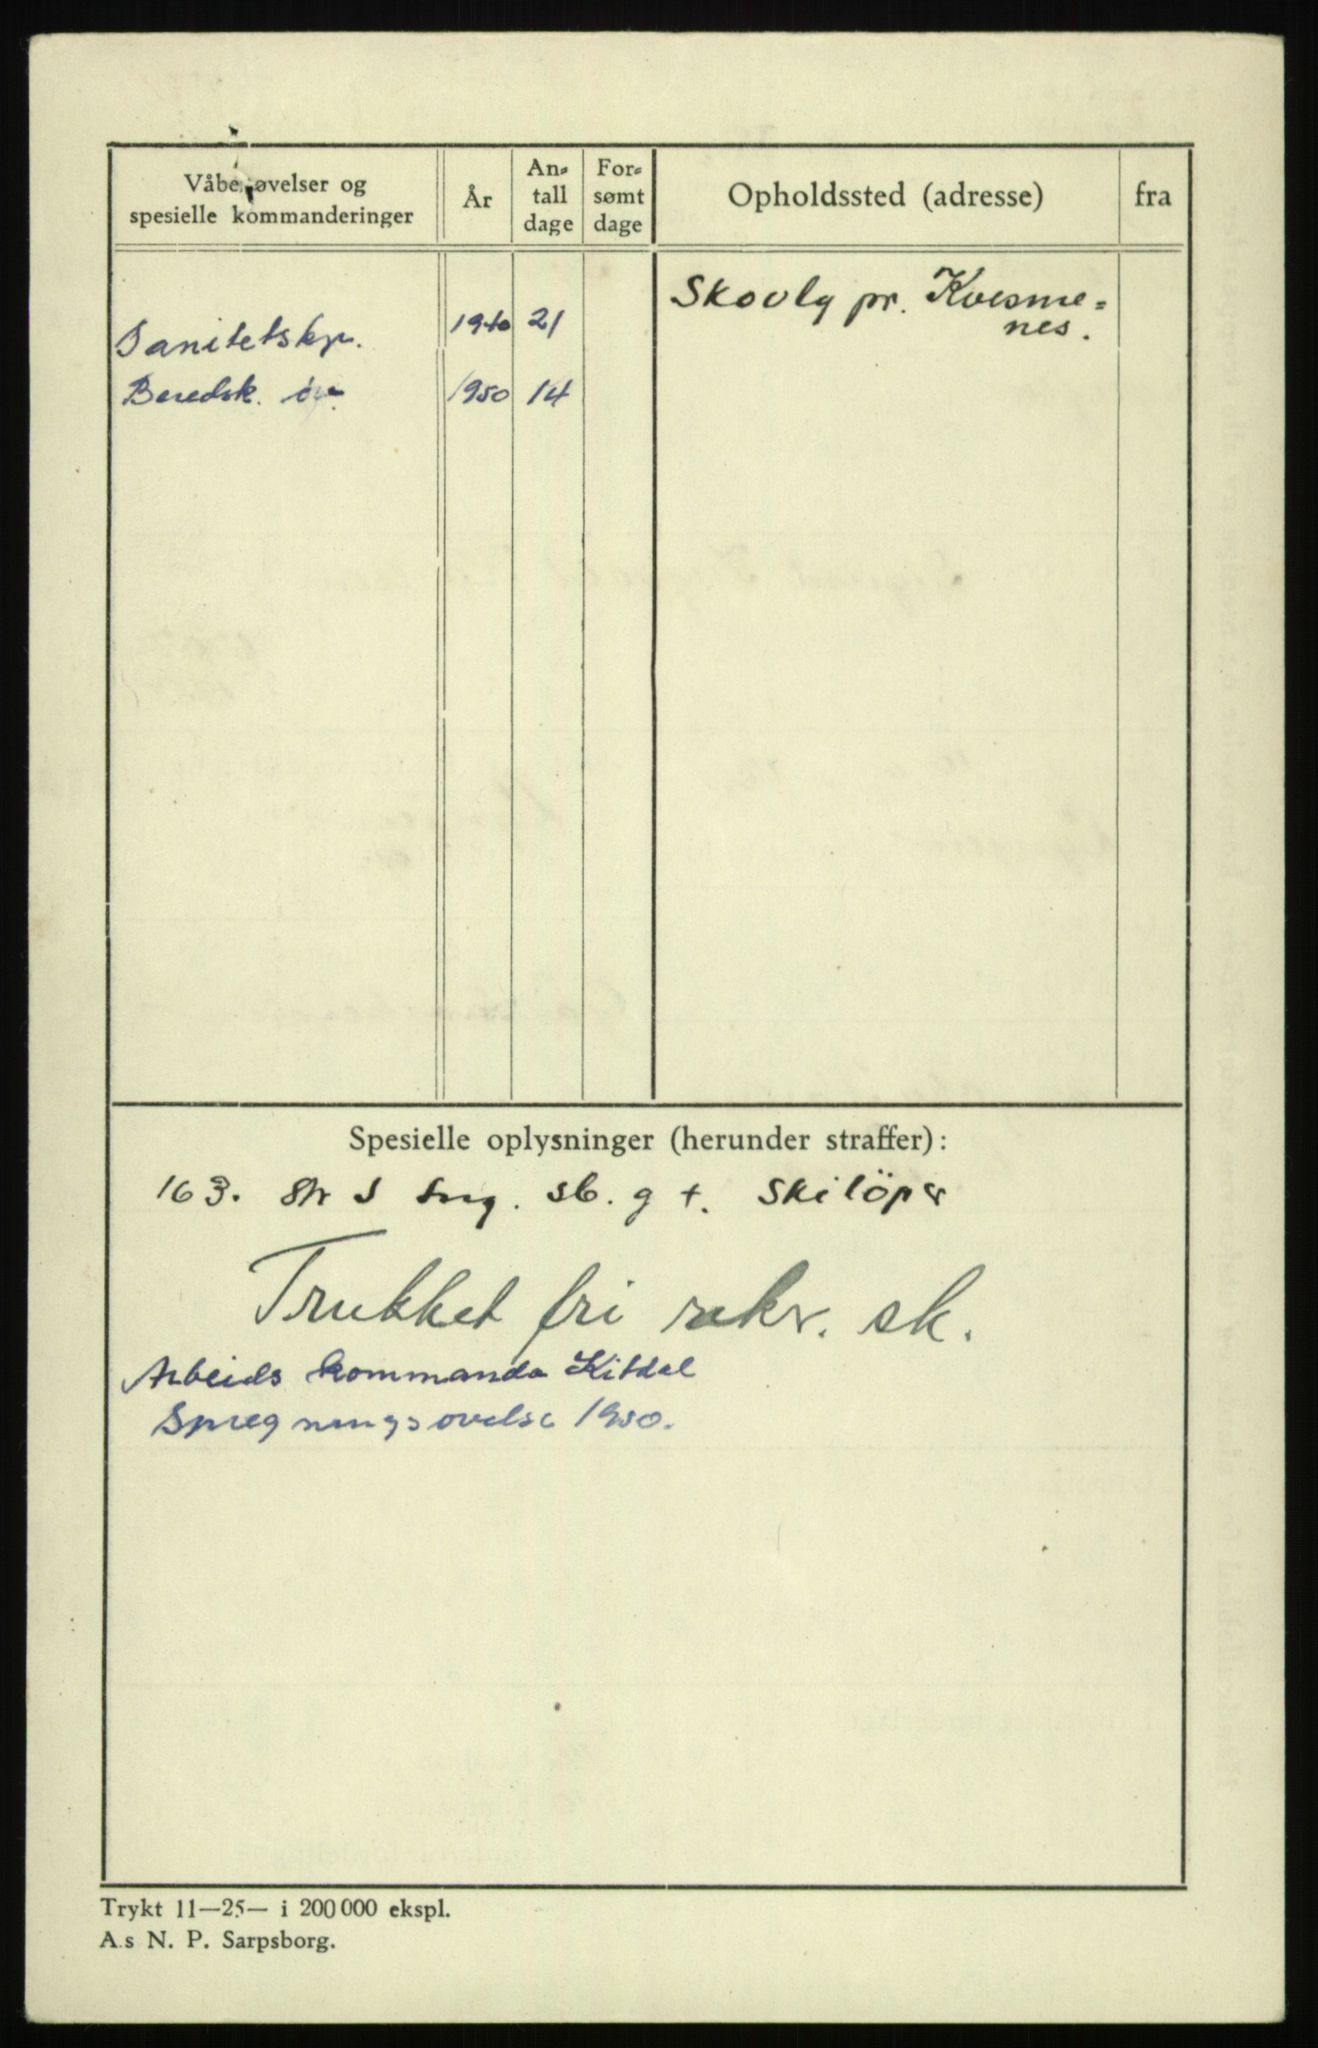 Våbenøvelser og
spesielle kommanderinger
År
An-
tall
dage
For-
sømt
dage
Opholdssted (adresse)
fra
Sanitetskp. 1940 21
Beredsk. øv. 1950 14
Skovly pr. Kvesme-
nes.
Spesielle oplysninger (herunder straffer):
163. str S sb. g t. Skilöper
Trukket fri rekr. sk.
Arbeids kommando Kitdal
Spregningsøvelse 1950.
Trykt 11—25— i 200 000 ekspl.
A.s N. P. Sarpsborg.